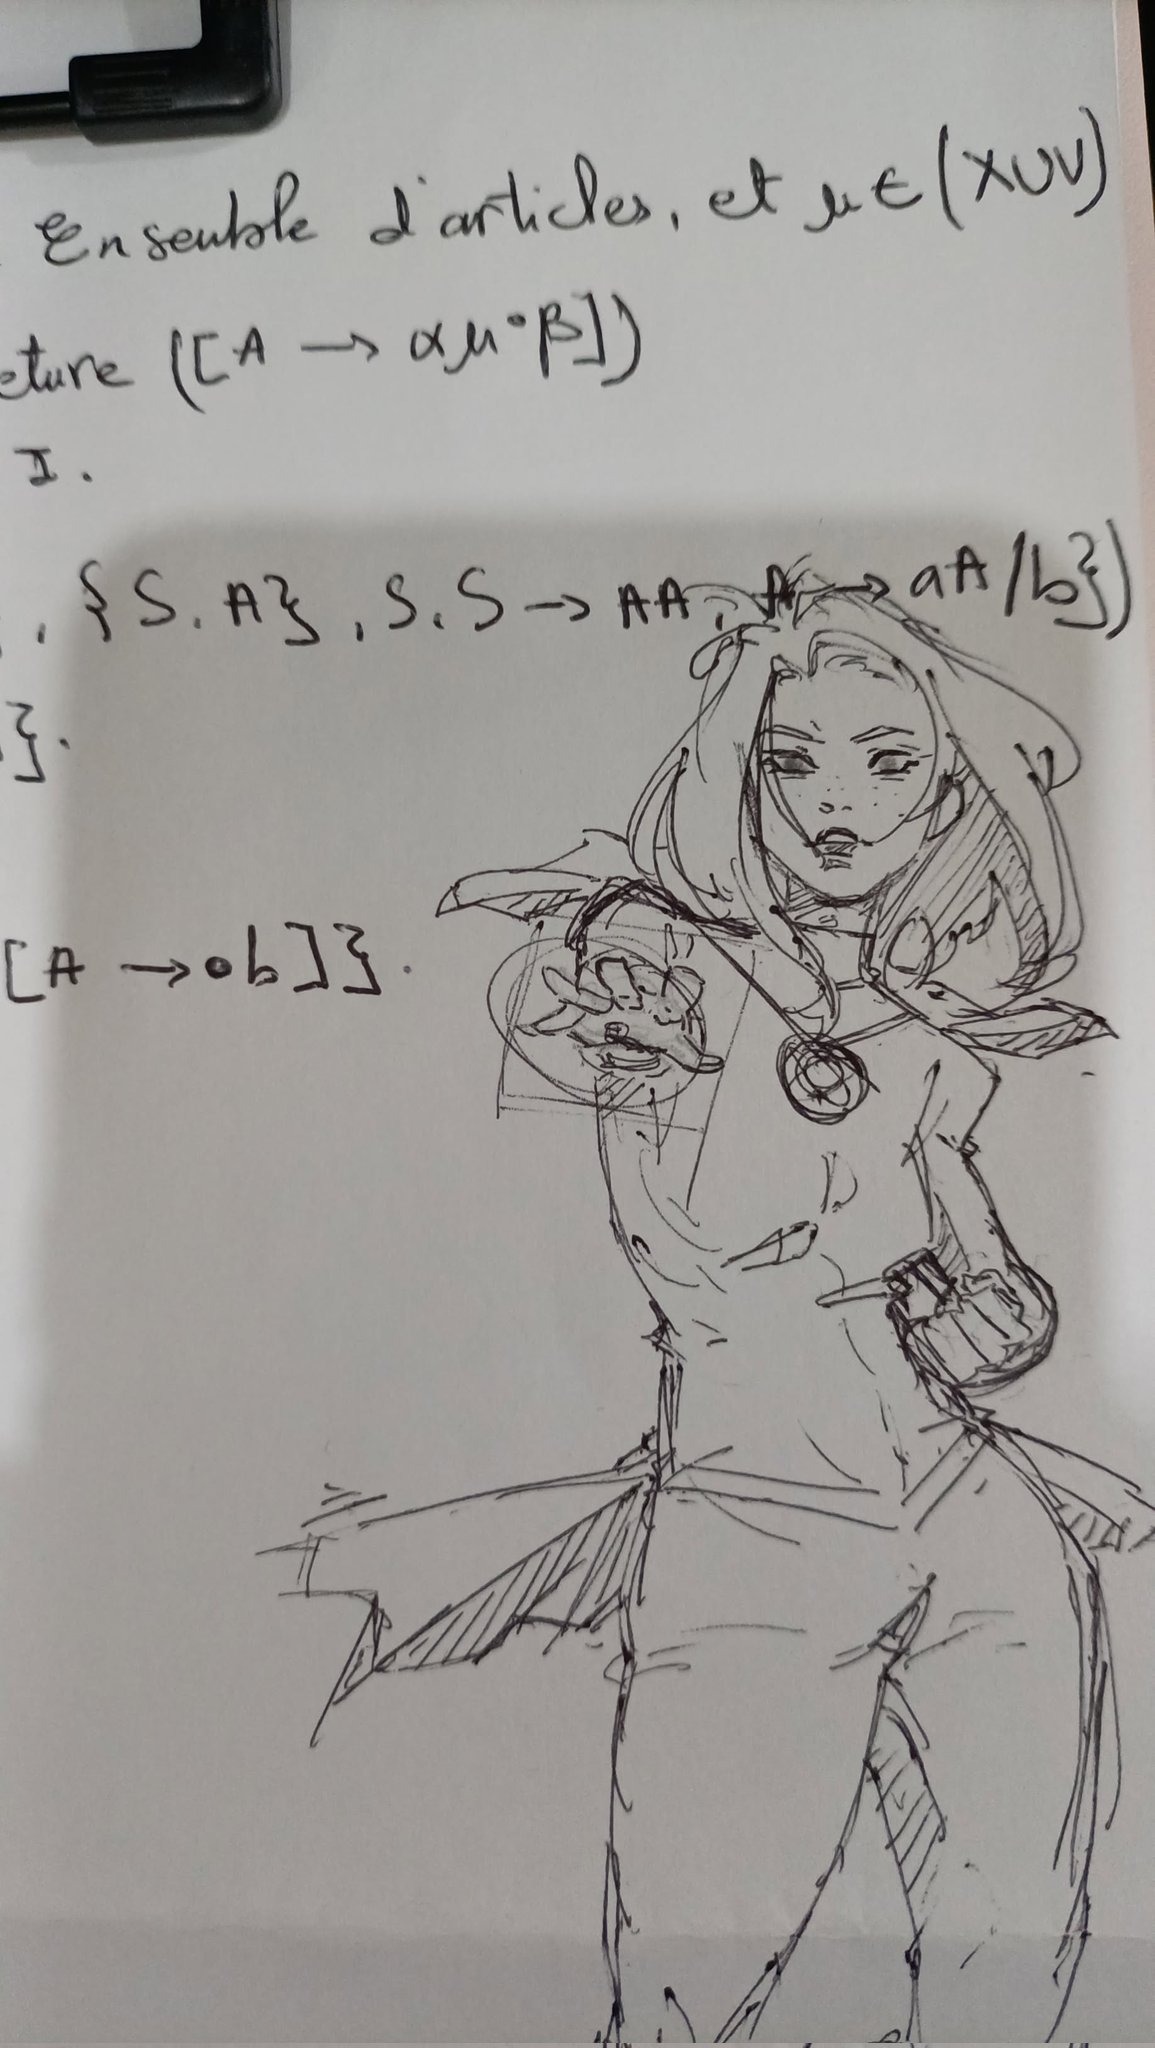 Ensemble d'articles, et μ ∈ (XUV)
eture ([A → αμ•β])
I.
, {S, A}, S, S → AA, A → aA/b})
}.
[A → •b]}.